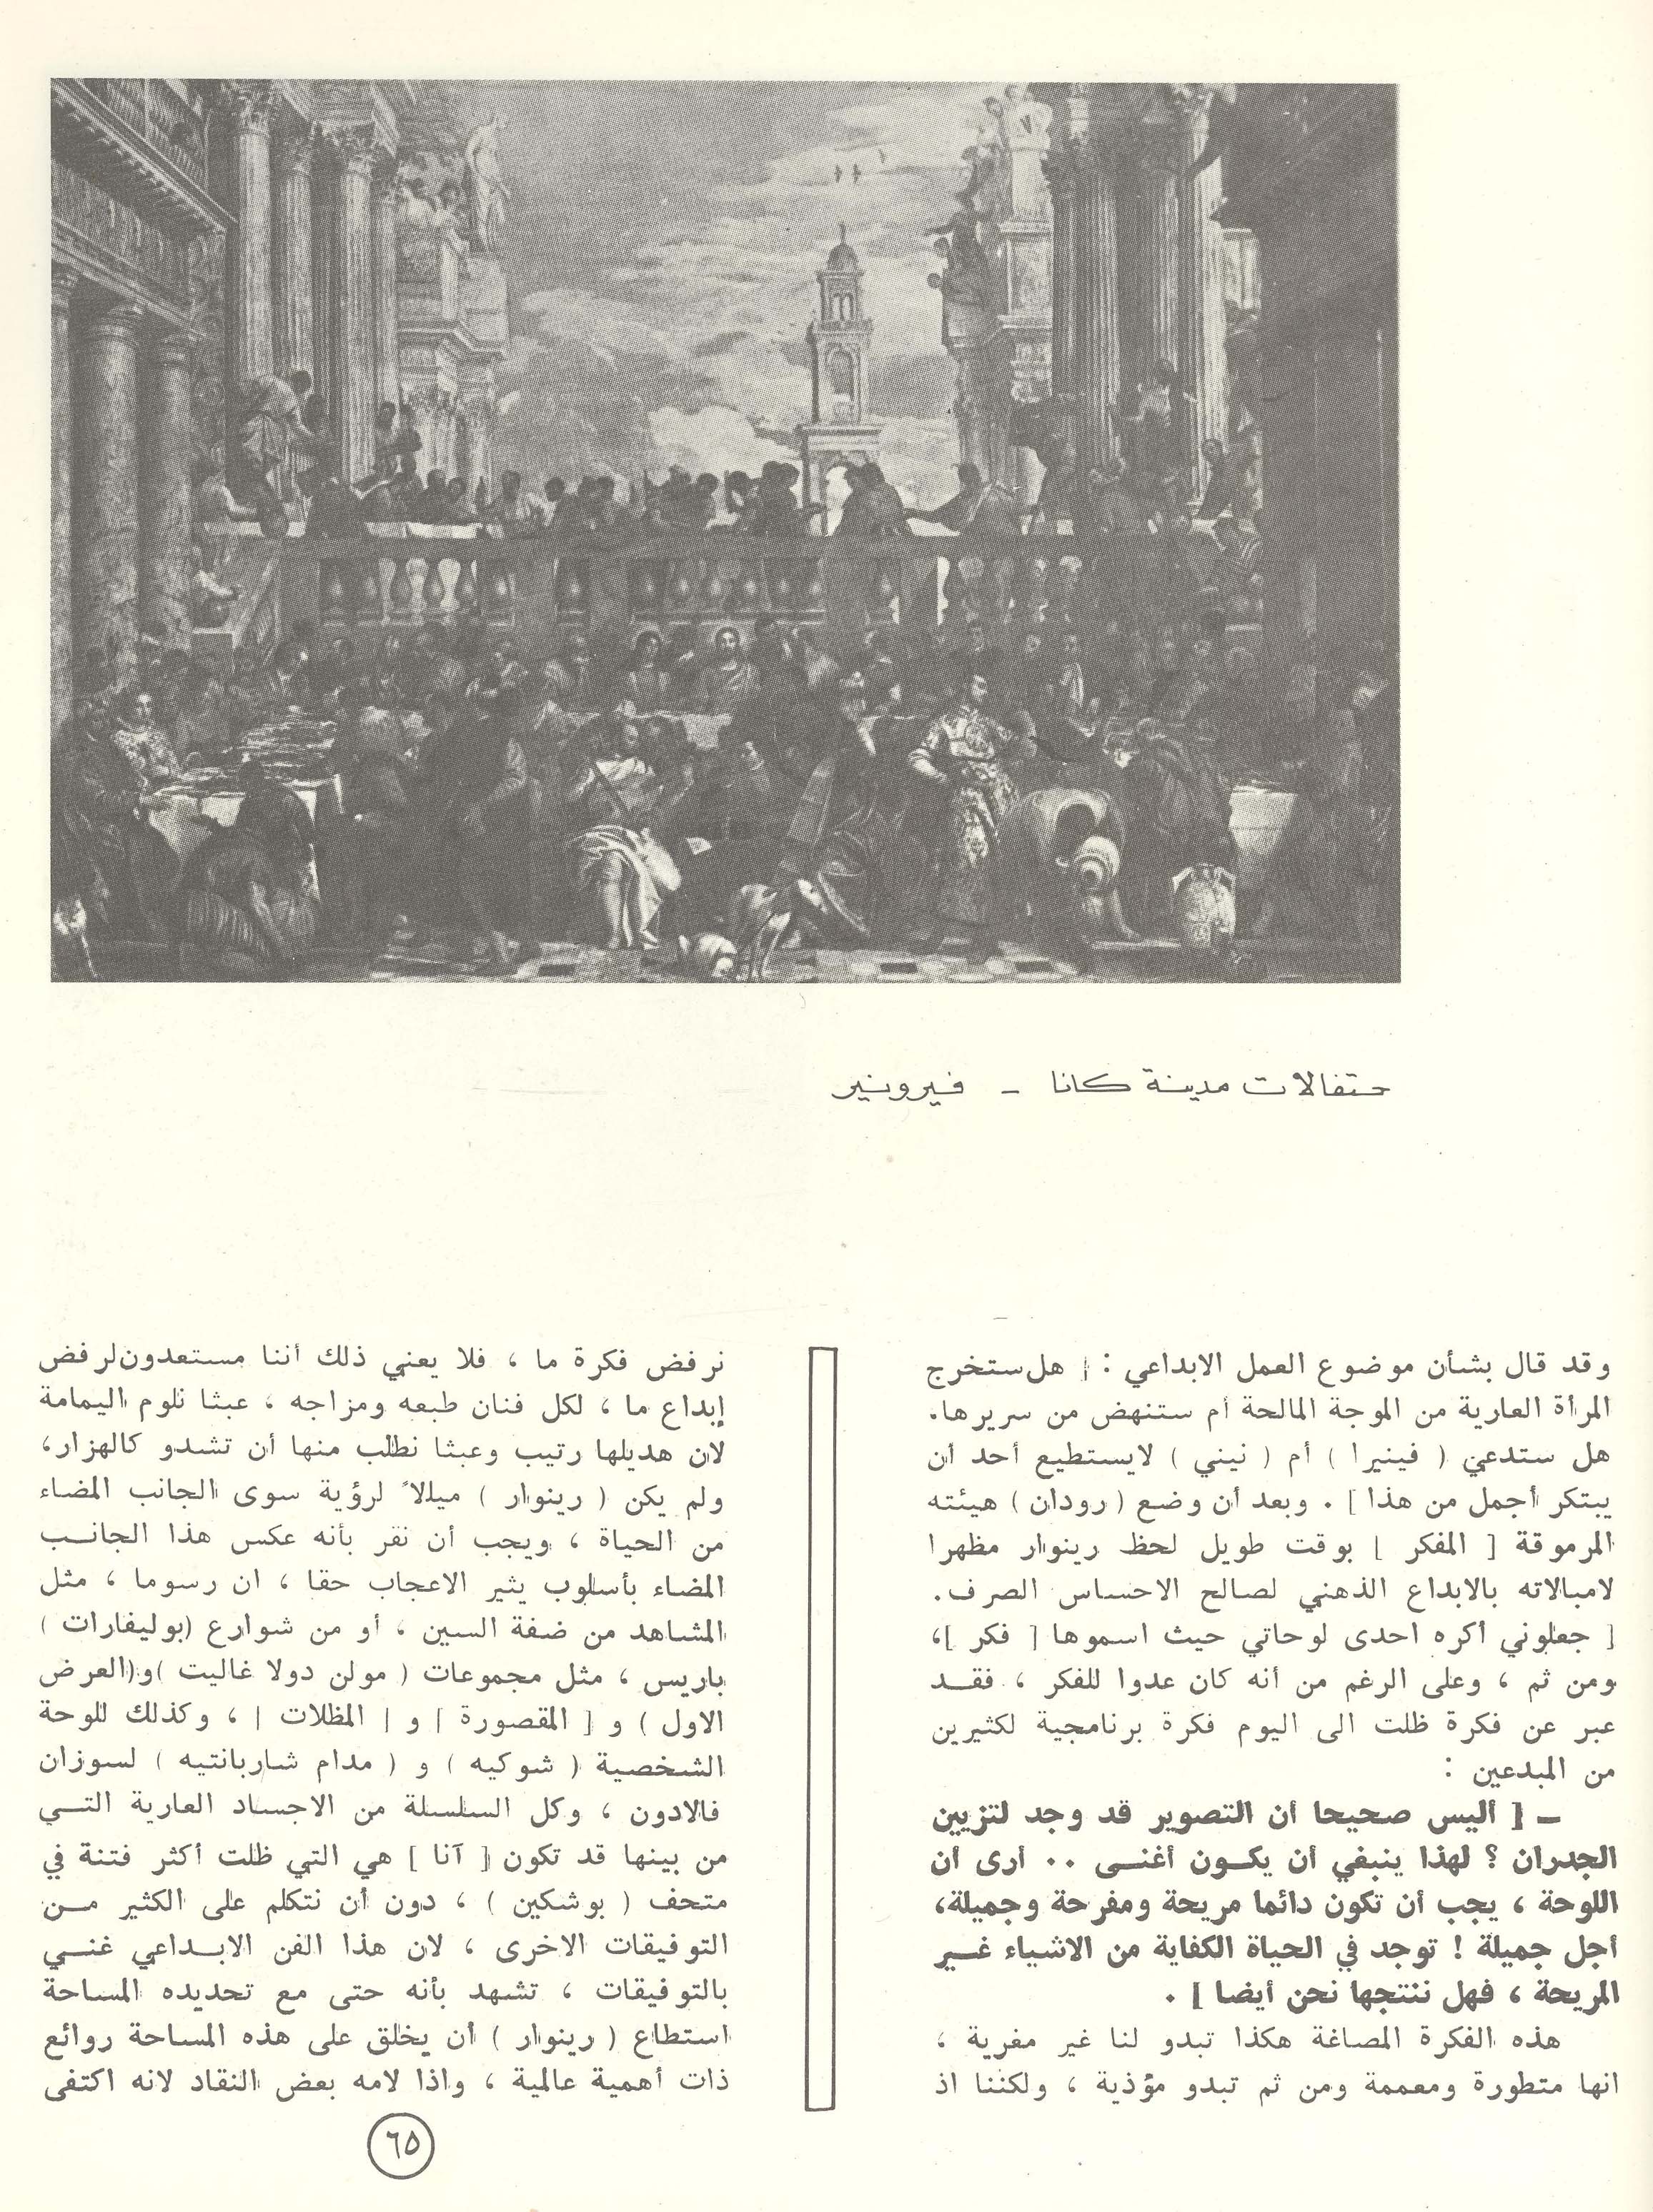 حتفالات مدينة كانا - فيرونير
وقد قال بشأن موضوع العمل الابداعي : [ هل ستخرج
المرأة العارية من الموجة المالحة أم ستنهض من سريرها.
هل ستدعى ( فينيرا ) أم ( نيني ) لايستطيع أحد ان
يبتكر أجمل من هذا ] . وبعد أن وضع ( رودان ) هيئته
المرموقة [ المفكر ] بوقت طويل لحظ رينوار مظهرا
لامبالاته بالابداع الذهني لصالح الاحساس الصرف.
[ جعلوني أكره احدى لوحاتي حيث اسموها [ فكر ]،
ومن ثم ، وعلى الرغم من أنه كان عدوا للفكر ، فقـد
عبر عن فكرة ظلت الى اليوم فكرة برنامجية لكثيرين
من المبدعين :
ـ [ أليس صحيحا أن التصوير قد وجد لتزيين
الجدران ؟ لهذا ينبغي أن يكـون أغنـى .. أرى أن
اللوحة ، يجب أن تكون دائما مريحة ومفرحة وجميلة،
أجل جميلة ! توجد في الحياة الكفاية من الاشياء غـير
المريحة ، فهل ننتجها نحن أيضا ] .
هذه الفكرة المصاغة هكذا تبدو لنا غير مغرية ،
انها متطورة ومعممة ومن ثم تبدو مؤذية ، ولكننا اذ
نرفض فكرة ما ، فلا يعني ذلك أننا مستعدون لرفض
إبداع ما ، لكل فنان طبعه ومزاجه ، عبثا نلوم اليمامة
لان هديلها رتيب وعبثا نطلب منها أن تشدو كالهزار،
ولم يكن ( رينوار ) ميالاً لرؤية سوى الجانب المضاء
من الحياة ، ويجب أن نقر بأنه عكس هذا الجانـب
المضاء بأسلوب يثير الاعجاب حقا ، ان رسوما ، مثل
المشاهد من ضفة السين ، أو من شوارع (بوليفارات )
باريس ، مثل مجموعات ( مولن دولا غاليت )و(العرض
الاول ) و [ المقصورة ] و [ المظلات ] ، وكذلك للوحة
الشخصية ( شوكيه ) و ( مدام شاربانتيه ) لسوزان
فالادون ، وكل السلسلة من الاجساد العارية التـي
من بينها قد تكون [ آنا ] هي التي ظلت أكثر فتنة في
متحف ( بوشكين ) ، دون أن نتكلم على الكثير مـن
التوفيقات الاخرى ، لان هذا الفن الابـداعي غنـي
بالتوفيقات ، تشهد بأنه حتى مع تحديده المساحة
استطاع ( رينوار ) أن يخلق على هذه المساحة روائع
ذات أهمية عالمية ، واذا لامه بعض النقاد لانه اكتفى
٦٥